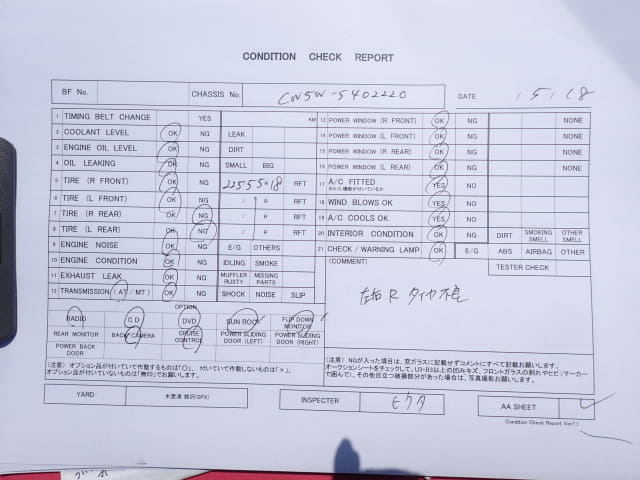 CONDITION CHECK REPORT
BF No. CHASSIS No. CW5W-5402220 DATE / 5 / 18
1 TIMING BELT CHANGE YES KM
2 COOLANT LEVEL OK NG LEAK
3 ENGINE OIL LEVEL OK NG DIRT
4 OIL LEAKING OK NG SMALL BIG
5 TIRE (R FRONT) OK NG 225 55 R 18 RFT
6 TIRE (L FRONT) OK NG / R RFT
7 TIRE (R REAR) OK NG / R RFT
8 TIRE (L REAR) OK NG / R RFT
9 ENGINE NOISE OK NG E/G OTHERS
10 ENGINE CONDITION OK NG IDLING SMOKE
11 EXHAUST LEAK OK NG MUFFLER RUSTY MISSING PARTS
12 TRANSMISSION (AT/MT) OK NG SHOCK NOISE SLIP
13 POWER WINDOW (R FRONT) OK NG NONE
14 POWER WINDOW (L FRONT) OK NG NONE
15 POWER WINDOW (R REAR) OK NG NONE
16 POWER WINDOW (L REAR) OK NG NONE
17 A/C FITTED YES NO
18 WIND BLOWS OK YES NO
19 A/C COOLS OK YES NO
20 INTERIOR CONDITION OK NG DIRT SMOKING SMELL OTHER SMELL
21 CHECK / WARNING LAMP OK NG E/G ABS AIRBAG OTHER
(COMMENT) TESTER CHECK
左右 R タイヤ不良
OPTION
RADIO CD DVD SUN ROOF FLIP DOWN MONITOR
REAR MONITOR BACK CAMERA CRUISE CONTROL POWER SLIDING DOOR (LEFT) POWER SLIDING DOOR (RIGHT)
POWER BACK DOOR
(注意) オプション品が付いていて作動するものは「〇」、付いていて作動しないものは「×」、
オプション品が付いていないものは「無印」でお願いします。
(注意) NGが入った項目は、窓ガラスに記載せずコメントにすべて記載お願いします。
オークションシートをチェックして、U3・B3以上の凹みキズ、フロントガラスの割れやヒビ(マーカー
で囲んで)、その他目立つ破損部分があった場合は、写真撮影お願いします。
YARD 木更津 INSPECTER AA SHEET
Condition Check Report Ver7.1